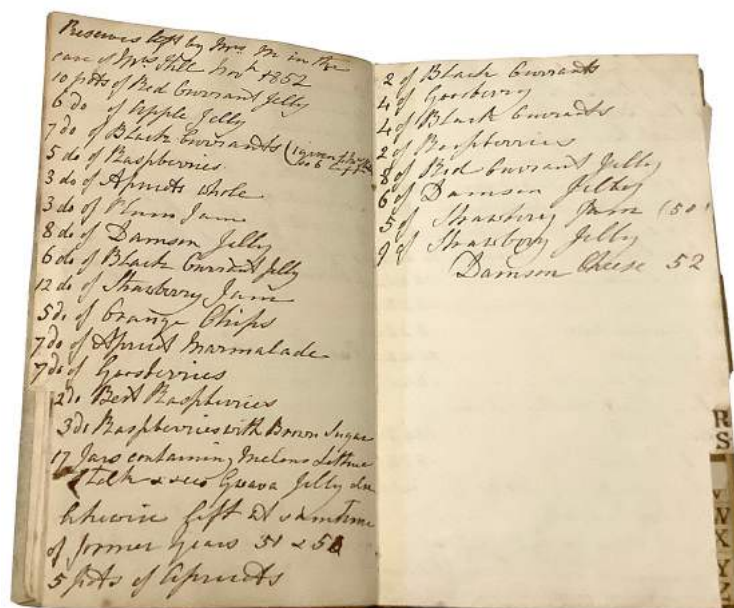 Preserves left by Mrs. M in the
care of Mrs. Hill Novr 1852
10 pots of Red Currant Jelly
6 do of Apple Jelly
7 do of Black Currants (1 given
so 6 left
5 do of Raspberries
3 do of Apricots whole
3 do of Plum Jam
8 do of Damson Jelly
6 do of Black Currant Jelly
12 do of Strawberry Jam
5 do of Orange Chips
7 do of Apricot Marmalade
7 do of Gooseberries
2 do Best Raspberries
3 do Raspberries with Brown Sugar
17 Jars containing Melons Lettuce
Stalk Guava Jelly
likewise left at
of former years 51 & 50
5 pots of Apricots
2 of Black Currants
4 of Gooseberry
4 of Black Currants
2 of Raspberries
8 of Red Currant Jelly
6 of Damson Jelly
5 of Strawberry Jam (50)
9 of Strawberry Jelly
Damson Cheese 52
R
S
W
X
Y